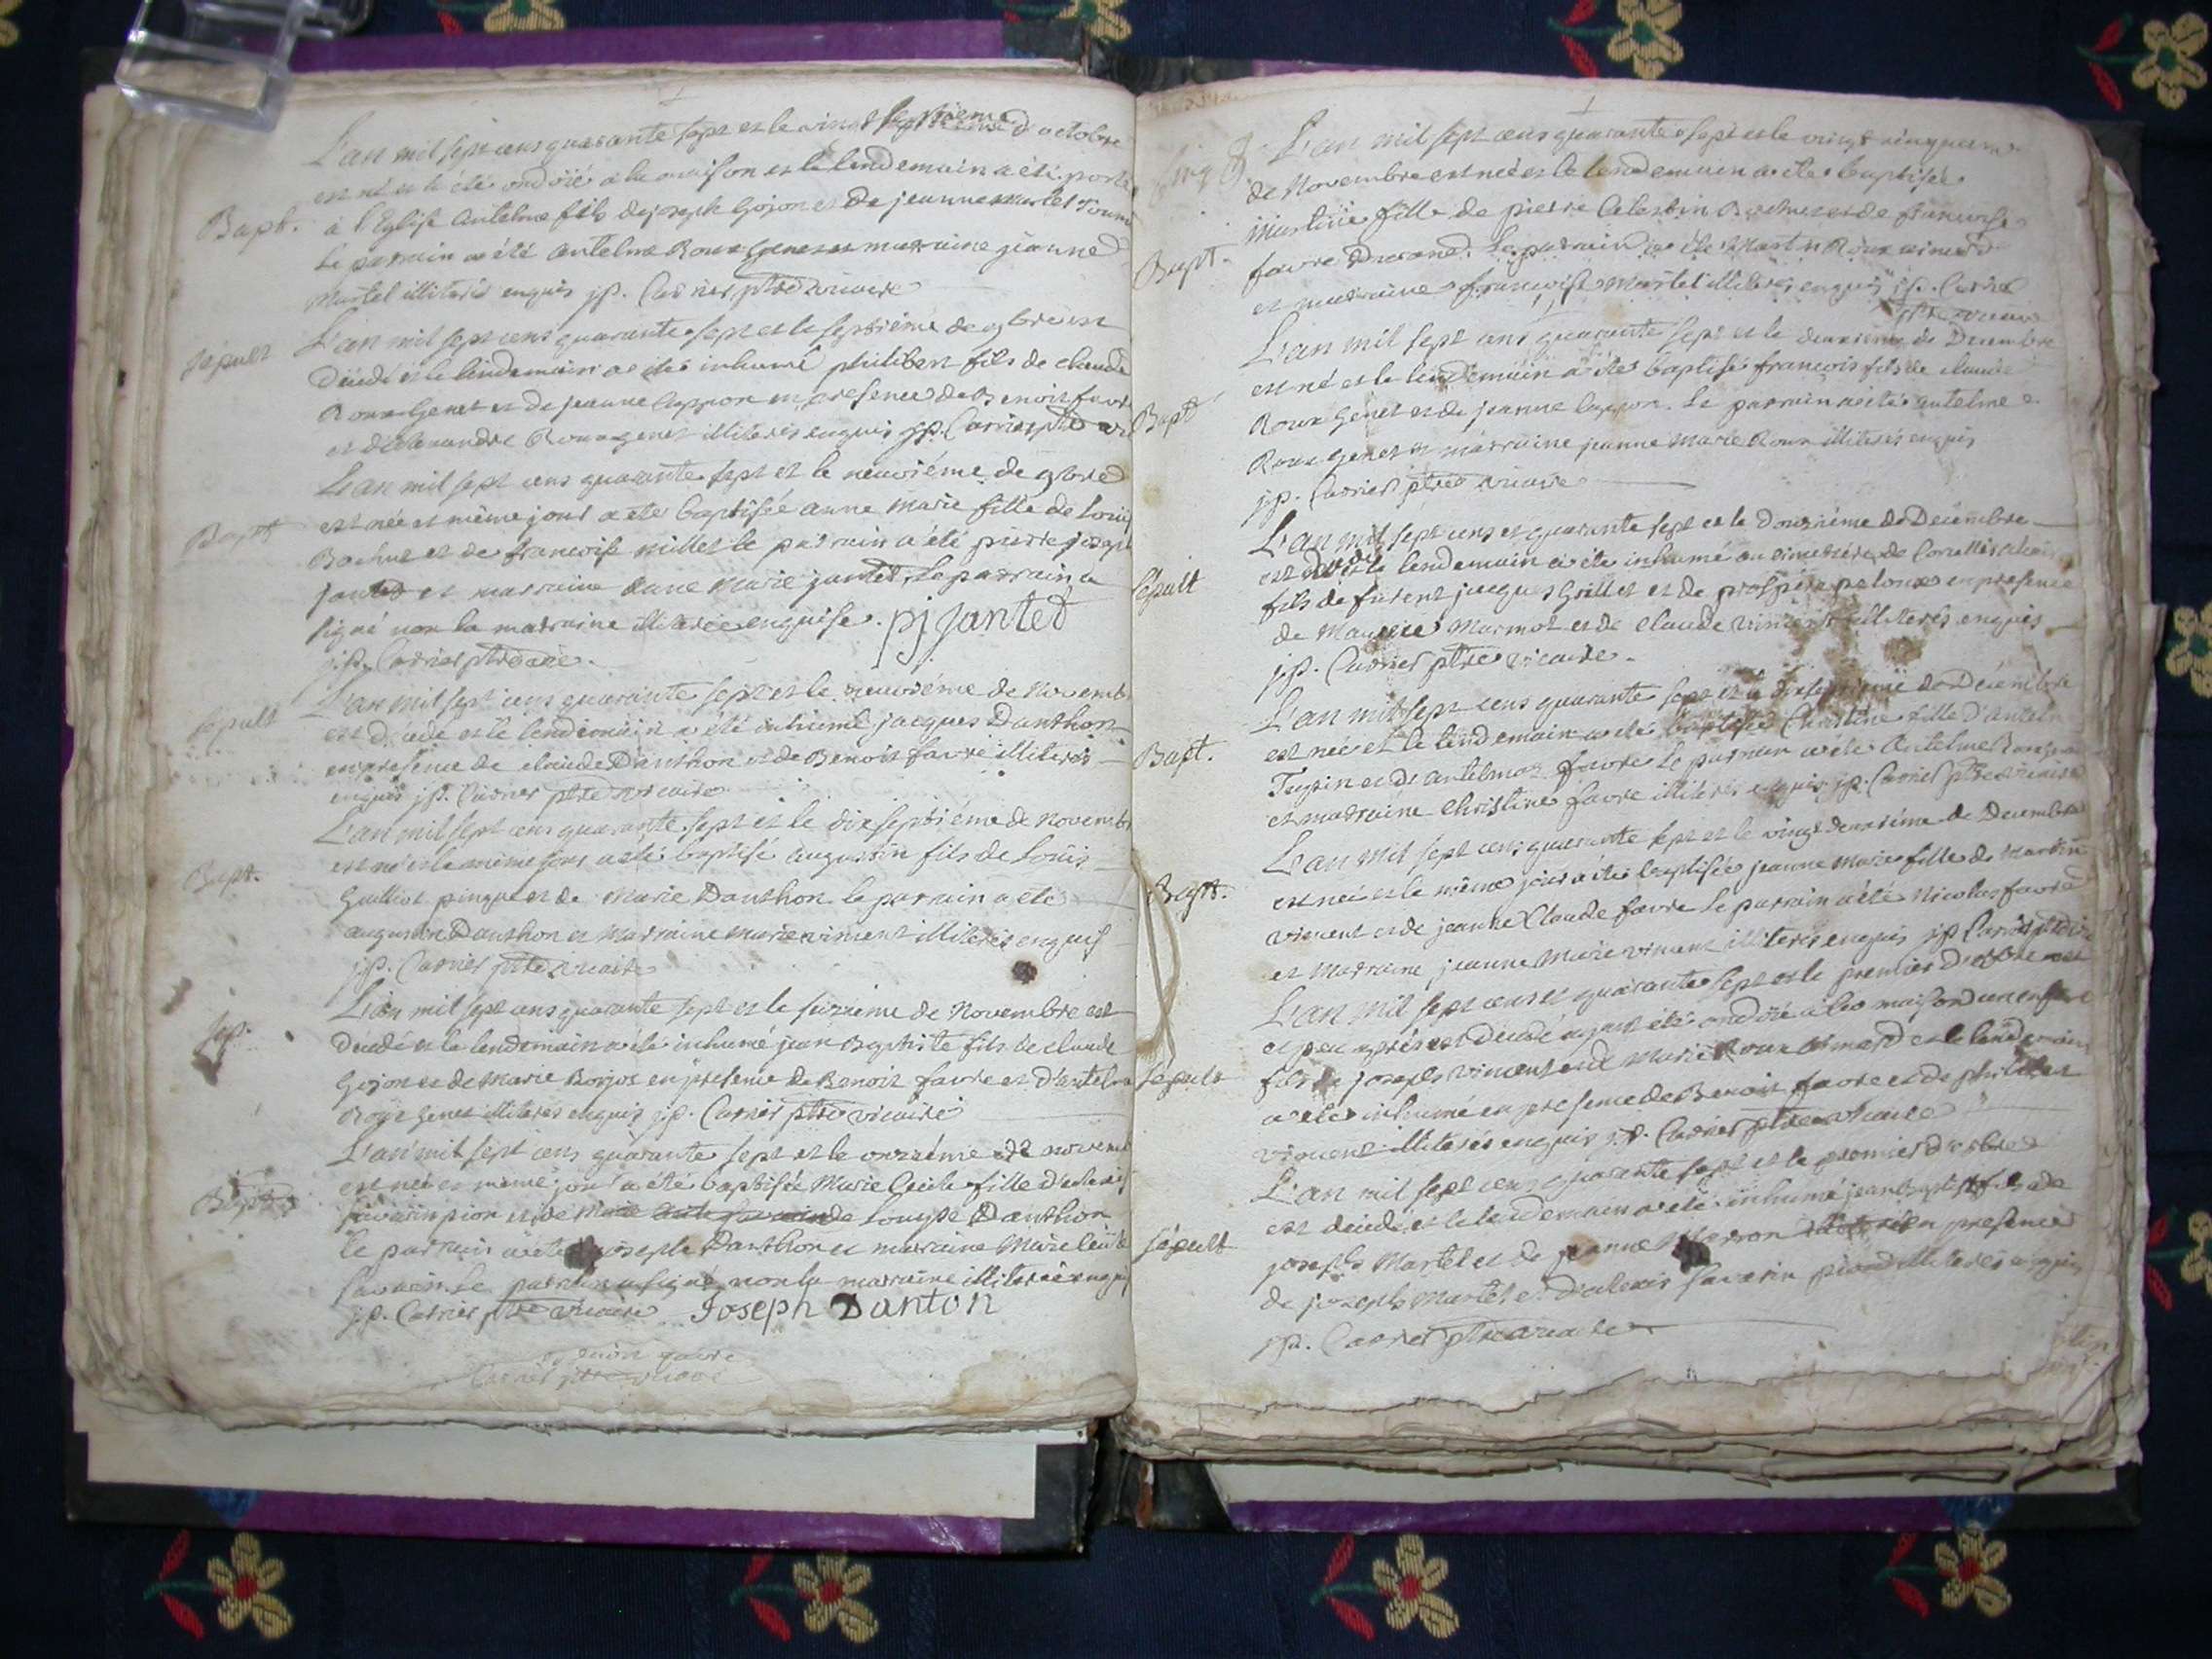 L'an mil sept cens quarante sept et le vingt septieme d'octobre
est né et a été ondoïé a la maison et le lendemain a été porté
Bapt. a l'Eglise antelme fils de joseph Gojon et de jeanne martel
le parrain a été antelme Roux Genet et marraine jeanne
Martel illiterés enquis jp. Carrier ptre vicaire
sepult L'an mil sept cens quarante sept et le septiéme de 9bre est
décedé et le lendemain a été inhumé philibert fils de claude
Roux Genet et de jeanne en presence de Benoit favre
et d'alexandre Roux genet illiterés enquis jp. Carrier ptre
L'an mil sept cens quarante sept et le neuviéme de 9bre
Bapt est née et même jour a été baptisée anne marie fille de Louis
Bochue et de francoise millet le parrain a été pierre joseph
jantet et marraine anne Marie jantet, le parrain a
signé non la marraine illiterée enquise. pj jantet
jp. Carrier ptre vicaire.
L'an mil sept cens quarante sept et le neuviéme de Novemb
Sepult est décedé et le lendemain a été inhumé jacques Danthon
en presence de claude Danthon et de Benoit favre illiterés
enquis jp. Carrier ptre vicaire
L'an mil sept cens quarante sept et le dix septiéme de novemb
Bapt. est né et le même jour a été baptisé augustin fils de Loüis
Guilliot pinguet de Marie Danthon le parrain a été
augustin Danthon et Marraine marie viment illiterés enquis
jp. Carrier ptre vicaire
L'an mil sept cens quarante sept et le seiziéme de Novembre est
Sep. décedé et le lendemain a été inhumé jean Baptiste fils de claude
Gojon et de Marie en presence de Benoit favre et d'antelme
Roux Genet illiterés enquis jp. Carrier ptre vicaire
L'an mil sept cens quarante sept et le onziéme de novemb
Bapt est née et même jour a été baptisée Marie Cecile fille d'alexis
savarin pion et de Louyse Danthon
le parrain a été joseph Danthon et marraine Marie
savarin le parrain a signé non la marraine illiterée enquis
jp. Carrier ptre vicaire Joseph Danton
Carrier ptre vicaire
L'an mil sept cens quarante sept et le vingt cinquieme
de Novembre est née et le lendemain a été baptisée
fille de pierre Celestin et de francoise
Bapt. favre Durand. Le parrain a été Martin Roux
et marraine francoise Martel illiterés enquis jp. Carrier
ptre vicaire
L'an mil sept cens quarante sept et le deuxieme de Decembre
est né et le lendemain a été baptisé francois fils de claude
Bapt Roux Genet et de jeanne Le parrain a été antelme
Roux Genet et marraine jeanne Marie Roux illiterés enquis
jp. Carrier ptre vicaire
L'an mil sept cens et quarante sept et le douziéme de Decembre
est le lendemain a été inhumé au cimetiére de
Sépult fils de jacques Grillet et de en presence
de Marmot et de claude vincent illiterés enquis
jp. Carrier ptre vicaire.
L'an mil sept cens quarante sept et le dix septieme de Décembre
est née et le lendemain a été baptisée Christine fille d'antelme
Bapt. Tupin et d'antelmaz favre Le parrain a été Antelme
et marraine Christine favre illiterés enquis jp. Carrier ptre vicaire
L'an mil sept cens quarante sept et le vingt deuxiéme de Decembre
Bapt. est née et le même jour a été baptisée jeanne Marie fille de Martin
viment et de jeanne Claude favre Le parrain a été Nicolas favre
et marraine jeanne Marie viment illiterés enquis jp Carrier ptre
L'an mil sept cens et quarante sept et le premier d'
et peu aprés est décedé ayant été ondoïé a la maison un enfant
Sépult fils de joseph viment et de Marie Roux et le lendemain
a été inhumé en presence de Benoit favre et de philibert
viment illiterés enquis jp. Carrier ptre vicaire
L'an mil sept cens quarante sept et le premier
est décedé et le lendemain a été inhumé jean baptiste fils de
Sépult joseph Martel et de jeanne en presence
de joseph Martel et d'alexis savarin pion illiterés enquis
jp. Carrier ptre vicaire